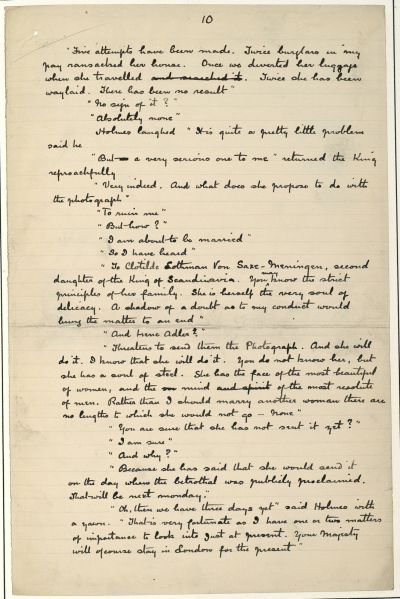 10
"Five attempts have been made. Twice burglars in my
pay ransacked her house. Once we diverted her luggage
when she travelled and searched it. Twice she has been
waylaid. There has been no result"
"No sign of it?"
"Absolutely none"
Holmes laughed "It is quite a pretty little problem
said he
"But a very serious one to me" returned the King
reproachfully
"Very indeed. And what does she propose to do with
the photograph"
"To ruin me"
"But how?"
"I am about to be married"
"So I have heard"
"To Clotilde Lothman Von Saxe-Meningen, second
daughter of the King of Scandinavia. You may know the strict
principles of her family. She is herself the very soul of
delicacy. A shadow of a doubt as to my conduct would
bring the matter to an end"
"And Irene Adler?"
"Threatens to send them the Photograph. And she will
do it. I know that she will do it. You do not know her, but
she has a soul of steel. She has the face of the most beautiful
of women, and the mind and spirit of the most resolute
of men. Rather than I should marry another woman there are
no lengths to which she would not go – none"
"You are sure that she has not sent it yet?"
"I am sure"
"And why?"
"Because she has said that she would send it
on the day when the betrothal was publicly proclaimed.
That will be next monday."
"Oh, then we have three days yet" said Holmes with
a yawn. "That is very fortunate as I have one or two matters
of importance to look into just at present. Your Majesty
will of course stay in London for the present"